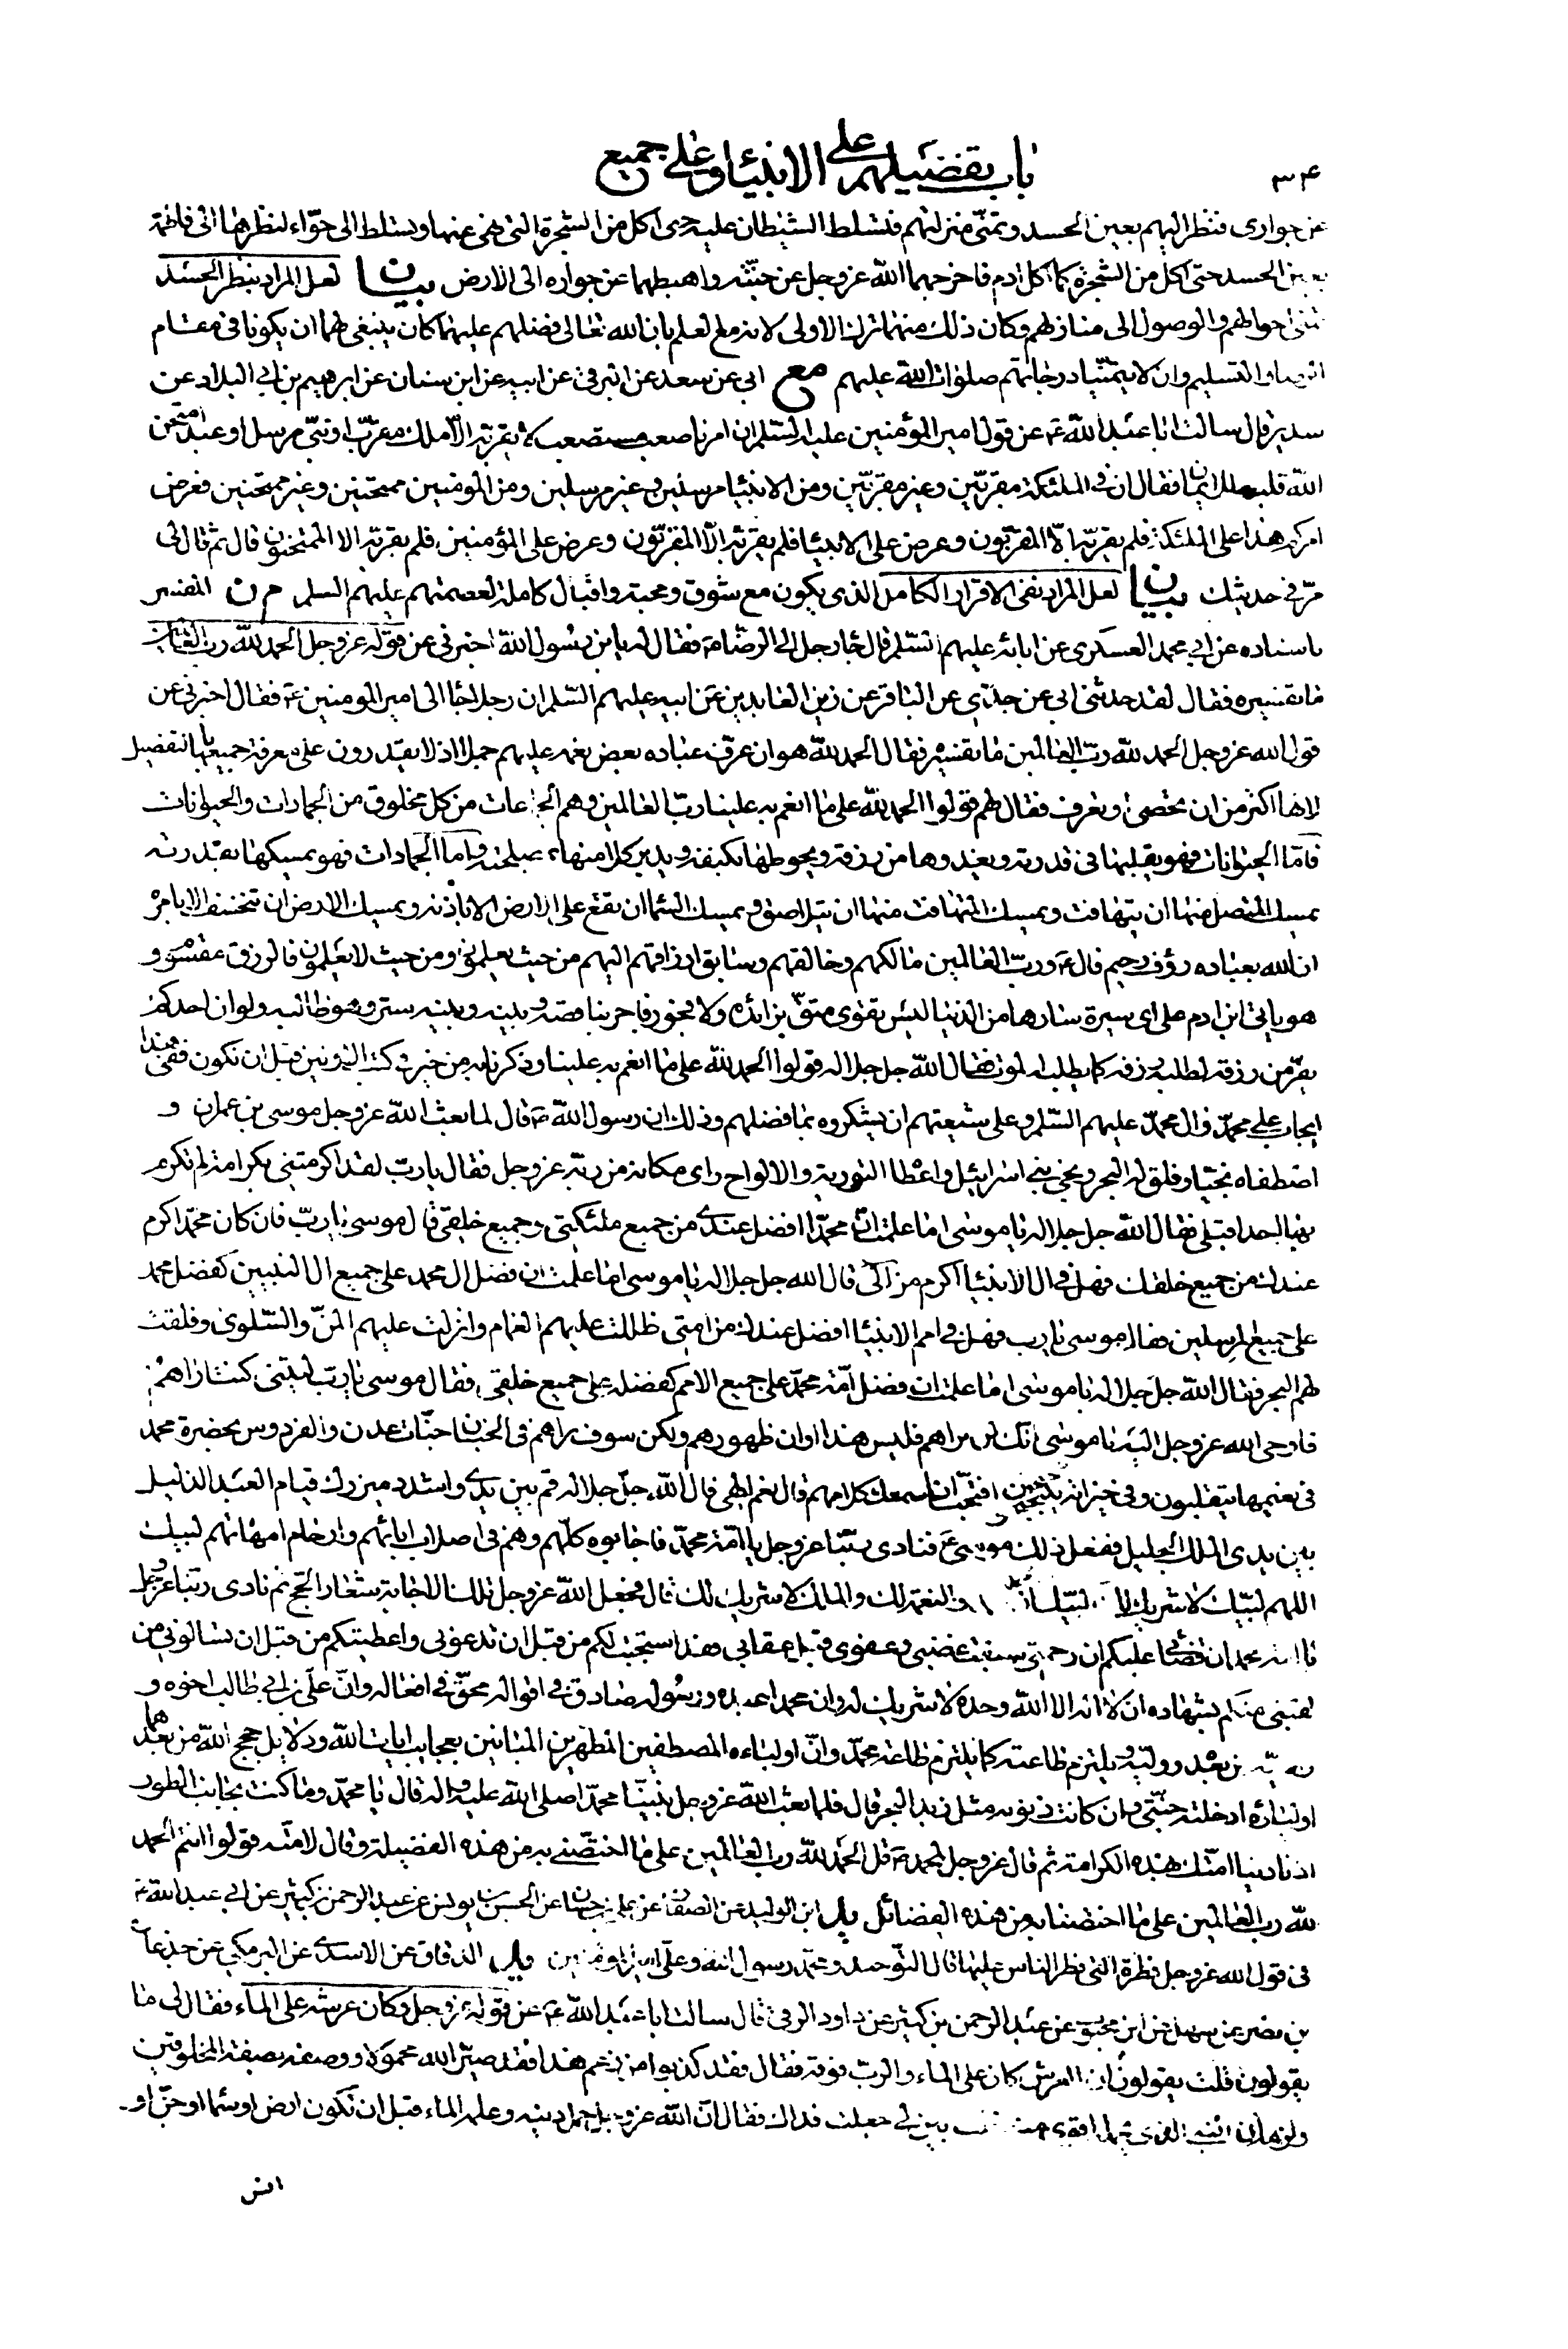 باب تفضيلهم على الانبياء وعلى جميع
٣٠۴
عن جوارى فنظر اليهم بعين الحسد وتمنّى منزلتهم فتسلّط الشيطان عليه حتى اكل من الشجرة التى نهى عنها وتسلط الى حوّاء لنظرها الى فاطمة
بعين الحسد حتى اكل من الشجرة كما اكل ادم فاخرجهما الله عز وجل عن جنّته واهبطهما عن جواره الى الارض بيان لعل المراد بنظر الحسد
تمنى احوالهم والوصول الى منازلهم وكان ذلك منهما ترك الاولى لانه مع العلم بان الله تعالى فضلهم عليهما كان ينبغى لهما ان يكونا فى مقام
الرضا والتسليم وان لا يتمنّيا درجاتهم صلوات الله عليهم مع ابى عن سعد عن البرقى عن ابيه عن ابن سنان عن ابرهيم بن ابى البلاد عن
سدير قال سالت ابا عبد الله ع عن قول امير المؤمنين عليه السلم ان امرنا صعب مستصعب لا يقرّ به الّا ملك مقرّب او نبىّ مرسل او عبد امتحن
الله قلبه للايمان فقال ان فى الملئكة مقربّين وغير مقربّين ومن الانبياء مرسلين وغير مرسلين ومن المؤمنين ممتحنين وغير ممتحنين فعرض
امركم هذا على الملئكة فلم يقرّ به الّا المقربّون وعرض على الانبياء فلم يقرّ به الّا المرسلون وعرض على المؤمنين فلم يقرّ به الا الممتحنون قال ثم قال لى
مرّ فى حديثك بيان لعل المراد نفى الاقرار الكامل الذى يكون مع شوق ومحبة واقبال كاملة لعصمتهم عليهم السلم م ن المفسر
باسناده عن ابى محمد العسكرى عن ابائه عليهم السّلم قال جاء رجل الى الرضا ع فقال له يا بن رسول الله اخبرنى عن قوله عز وجل الحمد لله رب العالمين
ما تفسيره فقال لقد حدثنى ابى عن جدّى عن الباقر عن زين العابدين عن ابيه عليهم السّلم ان رجلا جاء الى امير المومنين ع فقال اخبرنى عن
قول الله عز وجل الحمد لله ربّ العالمين ما تفسيره فقال الحمد لله هو ان عرّف عباده بعض نعمه عليهم جملا اذ لا يقدرون على معرفة جميعها بالتفصيل
لانها اكثر من ان تحصى او تعرف فقال لهم قولوا الحمد لله على ما انعم به علينا ربّ العالمين وهم الجماعات من كل مخلوق من الجمادات والحيوانات
فامّا الحيوانات فهو يقلبها فى قدرته ويغذوها من رزقه ويحوطها بكنفه ويدبر كلا منها بمصلحته واما الجمادات فهو يمسكها بقدرته
يمسك المتصل منها ان يتهافت ويمسك المتهافت منها ان يتلاصق ويمسك السماء ان تقع على الارض الا باذنه ويمسك الارض ان تنخسف الا بامره
ان الله بعباده رؤف رحيم قال ع وربّ العالمين مالكهم وخالقهم وسابق ارزاقهم اليهم من حيث يعلمون ومن حيث لا يعلمون فالرزق مقسوم و
هو ياتى ابن ادم على اى سيرة سارها من الدنيا ليس بتقوى متقّ بزائده ولا فجور فاجر بناقصه وبينه وبينه ستر وهو طالبه ولو ان احدكم
يفرّ من رزقه لطلبه رزقه كما يطلبه الموت فقال الله جل جلاله قولوا الحمد لله على ما انعم به علينا وذكرنا به من خير فى كتب الاولين قبل ان نكون ففى هذا
ايجاب على محمّد وال محمّد عليهم السّلم وعلى شيعتهم ان يشكروه بما فضلهم وذلك ان رسول الله ص قال لما بعث الله عز وجل موسى بن عمران و
اصطفاه نجيّا وفلق له البحر ونجى بنى اسرائيل واعطاه التورية والالواح راى مكانه من ربّه عز وجل فقال يا ربّ لقد اكرمتنى بكرامة لم تكرم
بها احدا قبلى فقال الله جل جلاله يا موسى اما علمت انّ محمّدا افضل عندى من جميع ملئكتى وجميع خلقى قال موسى يا ربّ فان كان محمّد اكرم
عندك من جميع خلقك فهل فى ال الانبياء اكرم من الى قال الله جل جلاله يا موسى اما علمت ان فضل ال محمد على جميع ال النبيين كفضل محمد
على جميع المرسلين فقال موسى يا رب فهل فى امم الانبياء افضل عندك من امتى ظللت عليهم الغمام وانزلت عليهم المنّ والسّلوى وفلقت
لهم البحر فقال الله جل جلاله يا موسى اما علمت ان فضل امّة محمّد على جميع الامم كفضله على جميع خلقى فقال موسى يا ربّ ليتنى كنت اراهم
فاوحى الله عز وجل اليه يا موسى انّك لن تراهم فليس هذا اوان ظهورهم ولكن سوف تراهم فى الجنان جنّات عدن والفردوس بحضرة محمد
فى نعيمها يتقلبون وفى خيراتها يتبجحون افتحبّ ان اسمعك كلامهم قال نعم الهى قال الله جلّ جلاله قم بين يدى واشدد ميزرك قيام العبد الذليل
بين يدى الملك الجليل ففعل ذلك موسى ع فنادى ربّنا عز وجل يا امّة محمّد فاجابوه كلّهم وهم فى اصلاب ابائهم وارحام امهاتهم لبيك
اللهم لبّيك لا شريك لك لبّيك ان الحمد والنعمة لك والملك لا شريك لك قال فجعل الله عز وجل تلك الاجابة شعار الحج ثم نادى ربّنا عز وجل
يا امة محمد ان قضائى عليكم ان رحمتى سبقت غضبى وعفوى قبل عقابى فقد استجبت لكم من قبل ان تدعونى واعطيتكم من قبل ان تسالونى من
لقينى منكم بشهادة ان لا اله الا الله وحده لا شريك له وان محمدا عبده ورسوله صادق فى اقواله محقّ فى افعاله وانّ علىّ بن ابى طالب اخوه و
وصيّه من بعده ووليّه ويلتزم طاعته كما يلتزم طاعة محمّد وانّ اولياءه المصطفين المطهرين المباينين بعجايب ايات الله ودلايل حجج الله من بعدهما
اولياؤه ادخلته جنّتى وان كانت ذنوبه مثل زبد البحر قال فلما بعث الله عز وجل نبيّنا محمّدا صلى الله عليه واله قال يا محمّد وما كنت بجانب الطور
اذ نادينا امّتك بهذه الكرامة ثم قال عز وجل لمحمد ص قل الحمد لله رب العالمين على ما اختصّنى به من هذه الفضيلة وقال لامّته قولوا انتم الحمد
لله رب العالمين على ما اختصّنا به من هذه الفضائل يد ابن الوليد عن الصفار عن على بن حسان عن الحسن بن يونس عن عبد الرحمن بن كثير عن ابى عبد الله ع
فى قول الله عز وجل فطرة الله التى فطر الناس عليها قال التوحيد ومحمّد رسول الله وعلىّ امير المؤمنين يد الدقاق عن الاسدى عن البرمكى عن جذعان
بن نصر عن سهل عن ابن محبوب عن عبد الرحمن بن كثير عن داود الرقى قال سالت ابا عبد الله ع عن قوله عز وجل وكان عرشه على الماء فقال لى ما
يقولون قلت يقولون ان العرش كان على الماء والربّ فوقه فقال فقد كذبوا من زعم هذا فقد صيّر الله محمولا ووصفه بصفة المخلوقين
ولزمه ان الشىء الذى يحمله اقوى منه قلت بيّن لى جعلت فداك فقال انّ الله عز وجل حمل دينه وعلمه الماء قبل ان تكون ارض او سماء او جنّ او
انس